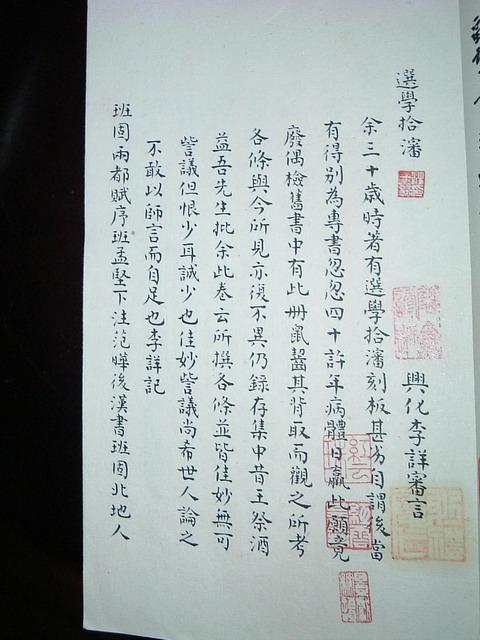 選學拾瀋
興化李詳審言
余三十歲時著有選學拾瀋刻板甚劣自謂後當
有得別為專書忽忽四十許年病體日羸此願竟
廢偶檢舊書中有此冊鼠齧其背取而觀之所考
各條與今所見亦復不異仍錄存集中昔王祭酒
益吾先生批余此卷云所撰各條並皆佳妙無可
訾議但恨少耳誠少也佳妙訾議尚希世人論之
不敢以師言而自足也李詳記
班固兩都賦序班孟堅下注范曄後漢書班固北地人